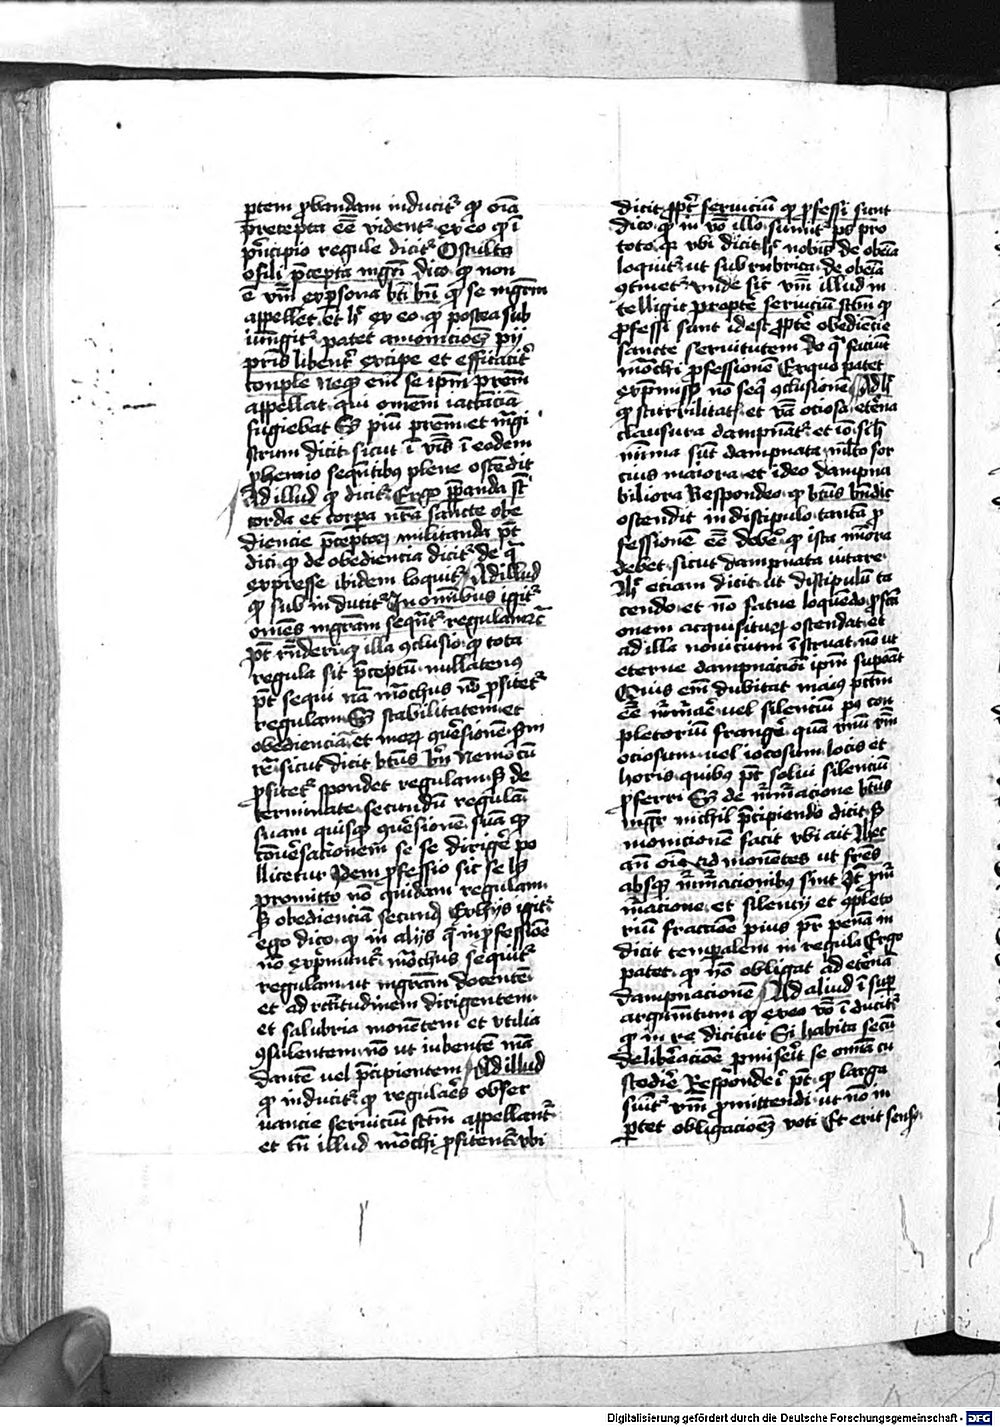 ptem ꝓbandam inducitᷣ ꝙ oīa
precepta eē̄ videntᷣ ex eo ꝙ ī
pⁱncipio regule dicitᷣ Osculta
o fili p̄cepta mgr̄i dico ꝙ non
ē vm̄ ex persona bt̄i bn̄ ꝙ se mgrm̄
appellet et h̓ ex eo ꝙ postea sub
iungitᷣ patet amonicioēs pij
pr̄is libent̓ excipe et efficacit̓
comple Neqꝫ em̄ se ip̄m pr̄em
appellat qui omēm iactācia
fugiebat Sꝫ piū pr̄em et mḡi
strum dicit sicut ī
phemio seqn̄tibꝯ plene ostēdit
Ad illud ꝙ dicitᷣ Ergo p̄panda st̄
corda et corpa nr̄a sancte obe
diencie p̄ceptoꝝ militanda pt̄
dici ꝙ de obediencia dicitᷣ de q̄
expresse ibidem loquitᷣ Ad illud
ꝙ sub inducitᷣ In omībus igitᷣ
omēs mgr̄am seqn̄tᷣ regulam
pt̄ rn̄deri illa ꝯclusio ꝙ tota
regula sit p̄ceptū nullatenꝯ
pt̄ sequi nā mōchus nō ꝓfitetᷣ
regulam Sꝫ stabilitatem et
obedienciā et moꝝ ꝯuersionē
sicut dicit bt̄us bn̄ Nemo cū
ꝓfitetᷣ spondet regulam sꝫ de
terminate secundū regulā
suam quisqꝫ ꝯuersionē suā qꝫ
cōuersationem se se dirigē po
llicetur Idem ꝓfessio sic se hꝫ
promitto nō quidam regulam
sꝫ obedienciā secundū Ex hijs igitᷣ
ego dico ꝙ in alijs q̄ in ꝓfessiōe
nō exp̄muntᷣ mōchus seqtᷣ
regulam ut mgr̄am docentē
et ad rectitudinem dirigentem
et salubria monētem et vtilia
ꝯsulentem nō ut iubentē
dantē uel p̄cipientem Ad illud
ꝙ inducitᷣ ꝙ regulaēs obser
uancie seruiciū sctm̄ appellantᷣ
et tn̄ illud mōchi ꝓfitentᷣ vbi
dicit ꝓpt̓ seruiciū ꝙ ꝓfessi sunt
dico ꝙ in vō illo sumitᷣ ps pro
toto qꝛ vbi dicit h̓ nobis de obēia
loquitᷣ ut sub rubrica de obēia
ꝯtinetᷣ vnde sic vm̄ illud in
telligit propter seruiciū sctm̄ ꝙ
ꝓfessi sunt id est ꝓpt̓ obediēcie
sancte seruitutem de q̄ faciūt
mōchi ꝓfessionē Ex quo patet
exp̄missꝭ nō seq̄ ꝯclusionē Ad h̓
ꝙ scurrilitatꝭ et vā ociosa etn̄a
clausura dampnātᷣ et iō si h̓
mīma sūt dampnata mlto for
cius maiora et ideo dampna
biliora Respondeo ꝙ bt̄us bn̄dic̄
ostendit in discipulo tantā ꝓ
fessionē eē̄ debe ꝙ ista
debet sicut dampnata vitare
h̓ etiam dicit ut discipulū ta
cendo et nō fatue loquēdo
onem acquisituꝝ ostendat et
ad illa nouicium īstruat nō ut
eterne dampnacioī ip̄m supōat
Quis em̄ dubitat maiꝰ pctm̄
eē̄ uel silenciū pꝰ con
pletoriū frangē quā vnū vm̄
ociosum uel iocosum locis et
horis quibꝯ pt̄ solui silenciū
ꝓferri Sꝫ de mur̄macione bt̄us
mgr̄ nichil p̄cipiendo dicit sꝫ
monicionē facit vbi ait Hec
an̄ oīa admonētes ut fr̄es
absqꝫ murmacionibꝯ sint Itē
macione et silencij et ꝯpleto
riū fractiōe pius pr̄ penā in
dicit temporalem in regula Ergo
patet ꝙ nō obligat ad etn̄a
dampnacionē Ad aliud ī sup
argumētum ꝙ ex eo vō īducitᷣ
ꝙ in re dicitur Si habita secū
deliberacōe promiserit se oīa cu
stodie Responde ī pt̄ ꝙ larga
sumitᷣ vm̄ ꝓmittendi ut nō in
portet obligacioēs voti Et erit sensꝰ
Digitalisierung gefördert durch die Deutsche Forschungsgemeinschaft - DFG